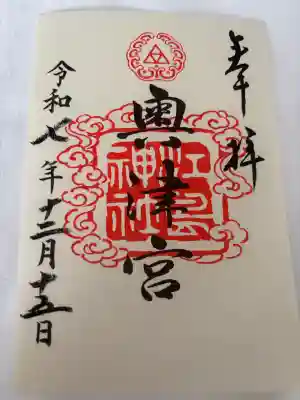 奉拝
奥津宮
江島
神社
令和七年十二月十五日